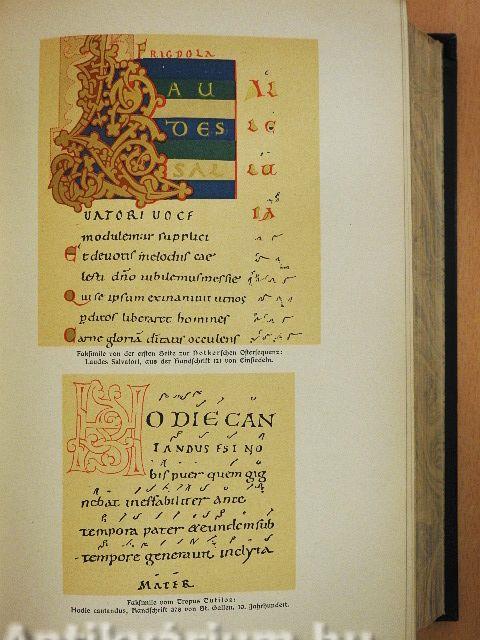 FRIGDOLA
LAUDES SAL
UATORI UOCE
modulemur supplici
Et deuotis melodiis cae
lesti dño iubilemus messie
Qui se ipsum exinaniuit ut nos
pditos liberaret homines
Carne gloriã ditatis occulens
AL
LE
LU
IA
Faksimile von der ersten Seite zur Notkerschen Ostersequenz:
Laudes Salvatori, aus der Handschrift 121 von Einsiedeln.
HODIE CAN
TANDUS EST NO
bis puer quem gig
nebat ineffabiliter ante
tempora pater & eundem sub
tempore generauit inclyta
MATER
Faksimile vom Tropus Tutilos:
Hodie cantandus, Handschrift 378 von St. Gallen, 10. Jahrhundert.